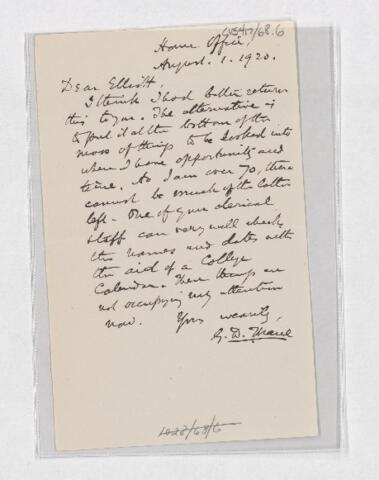 US417/68.6
Home Office,
August. 1. 1920.
Dear Elliott,
I think I had better return
this to you. The alternative is
to put it at the bottom of the
mass of things to be looked into
when I have opportunity and
time. As I am over 70, there
cannot be much of the latter
left. One of your clerical
staff can very well check
the names and dates with
the aid of a College
Calendar. These things are
not occupying my attention
now. Yrs wearily,
G. D.
1028/68/6